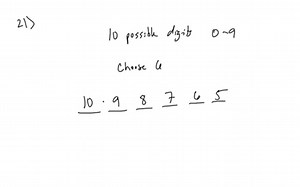 21)
10 possible digits 0-9
Choose 6
10 · 9 8 7 6 5